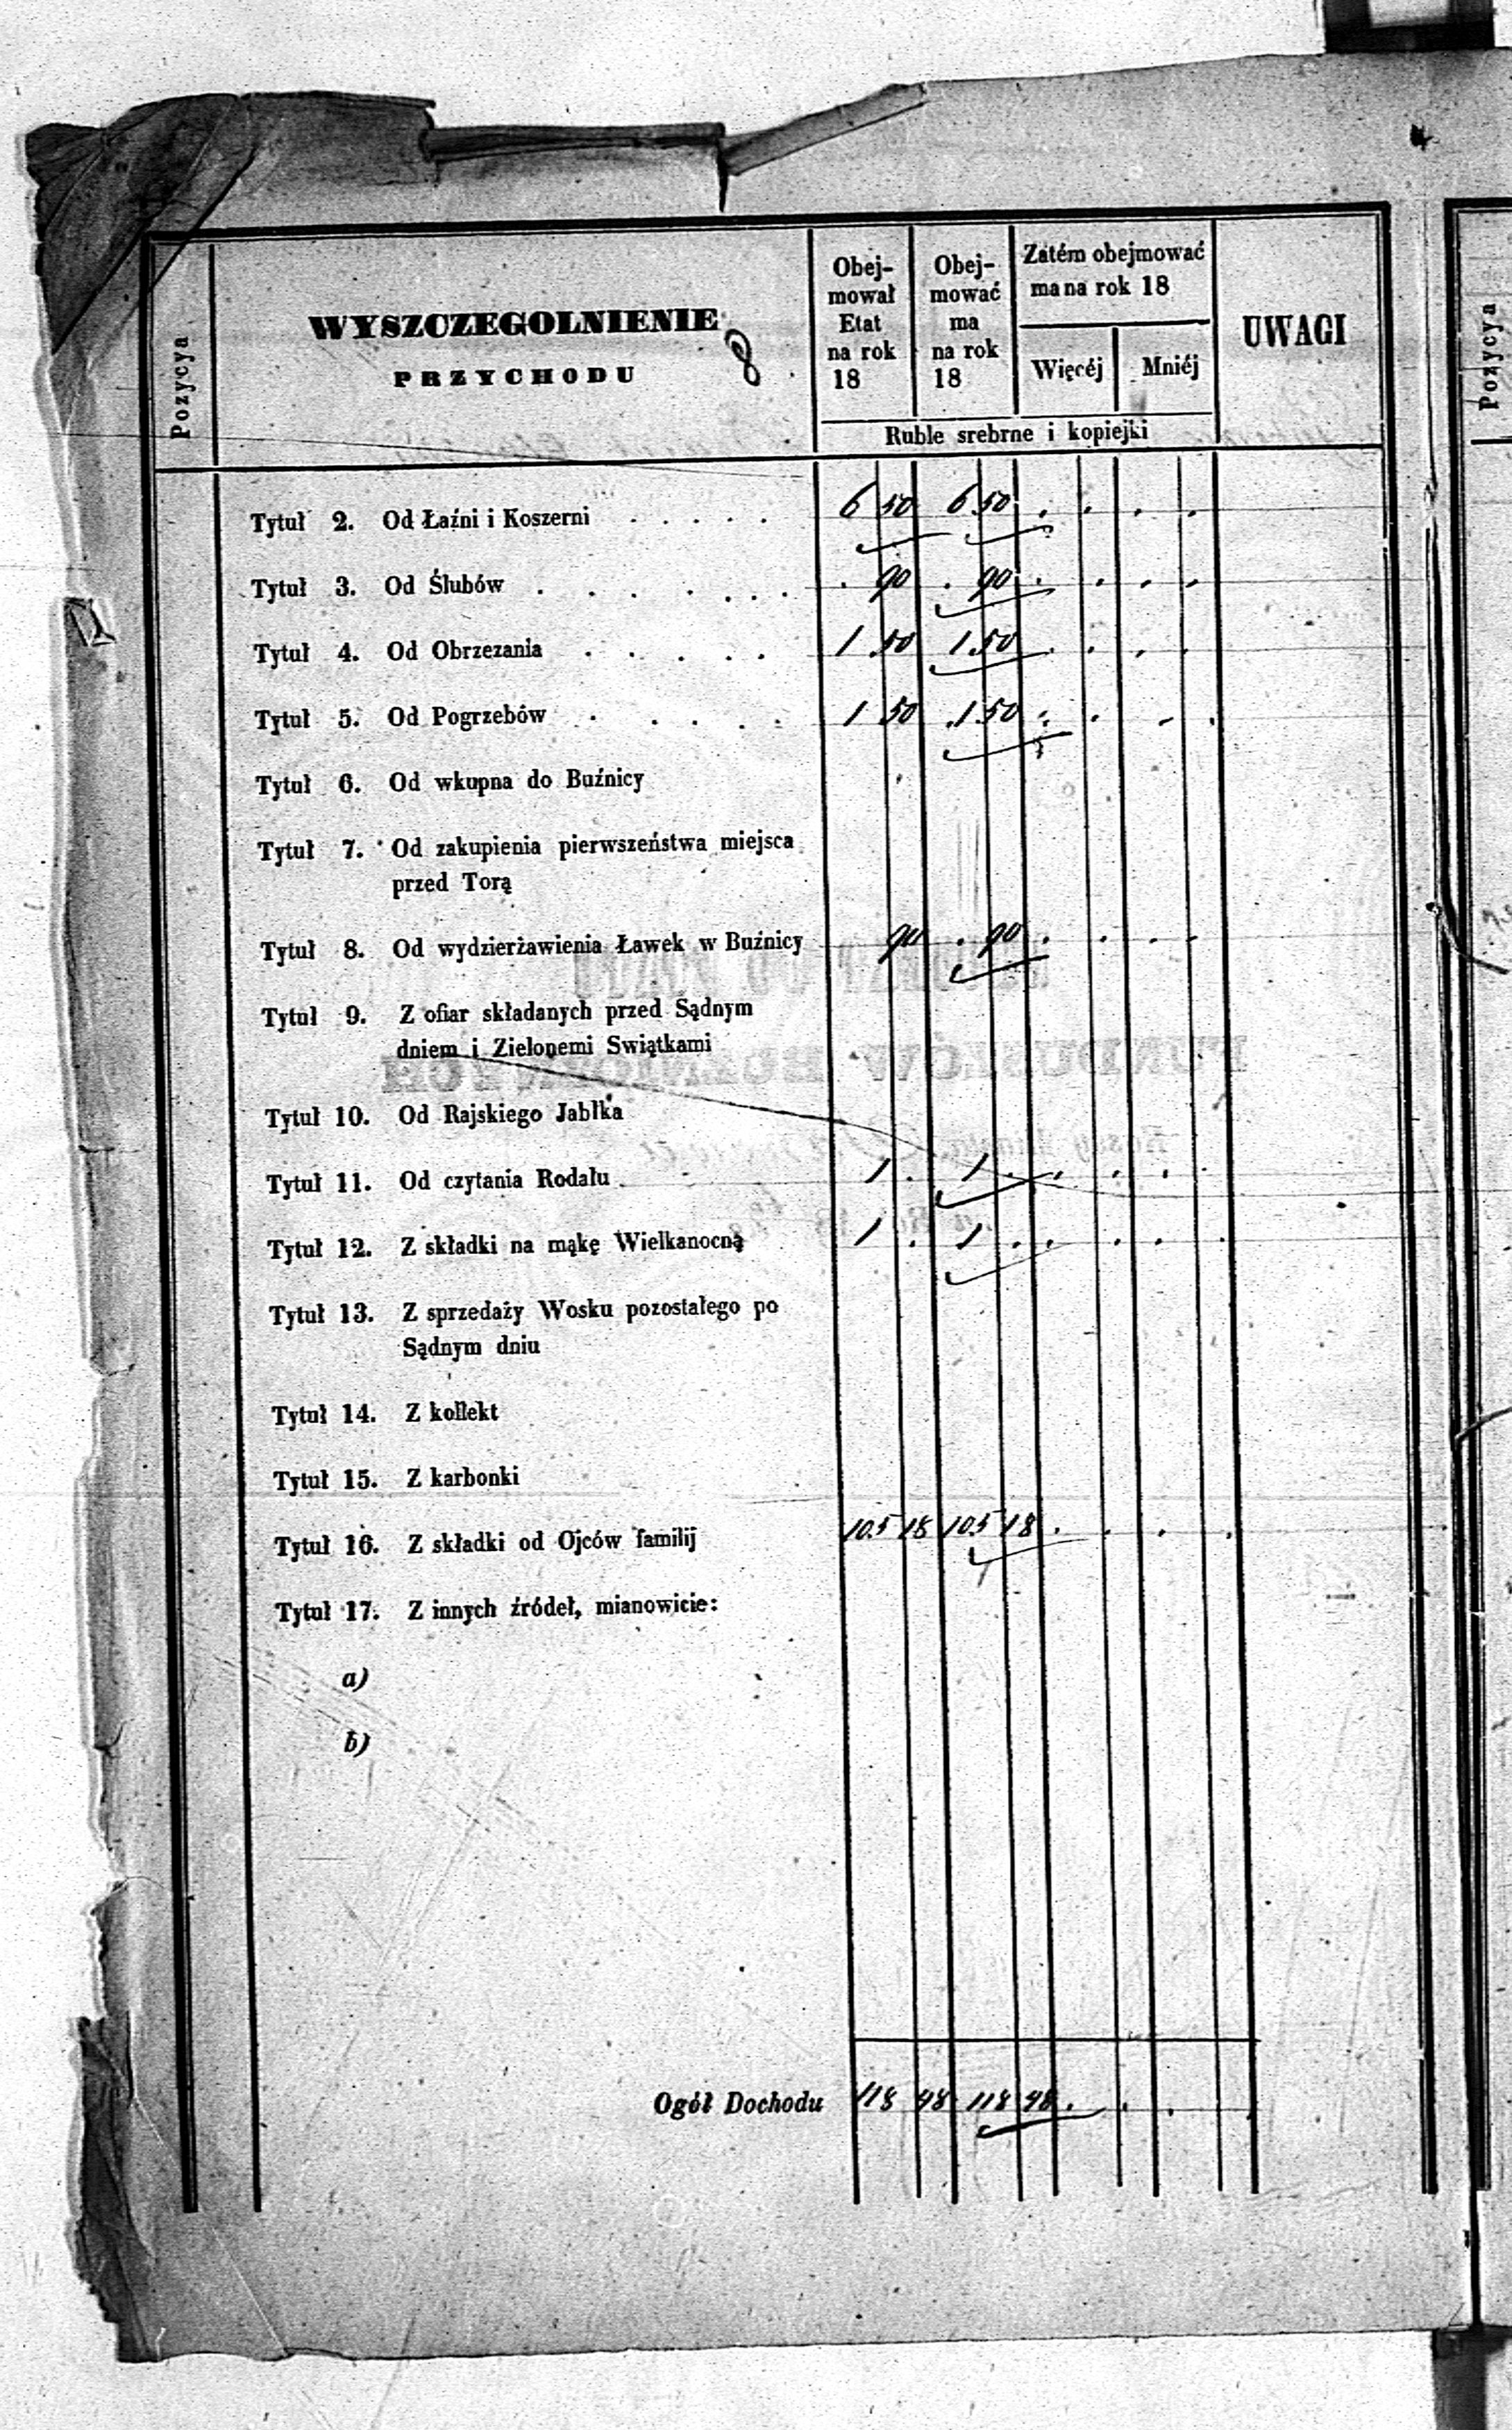 Pozycya
WYSZCZEGOLNIENIE
PRZYCHODU
Obej-
mował
Etat
na rok
18
Obej-
mować
ma
na rok
18
Zatém obejmować
ma na rok 18
Więcéj
Mniéj
UWAGI
Ruble srebrne i kopiejki
Tytuł 2. Od Łaźni i Koszerni . . . . . 6 50 6 50 . . . .
Tytuł 3. Od Ślubów . . . . . . . . 90 . 90 . . . .
Tytuł 4. Od Obrzezania . . . . . 1 50 1 50 . . . .
Tytuł 5. Od Pogrzebów . . . . . 1 50 1 50 . . . .
Tytuł 6. Od wkupna do Buźnicy
Tytuł 7. Od zakupienia pierwszeństwa miejsca
przed Torą
Tytuł 8. Od wydzierżawienia Ławek w Buźnicy 90 . 90 . . . .
Tytuł 9. Z ofiar składanych przed Sądnym
dniem i Zielonemi Swiątkami
Tytuł 10. Od Rajskiego Jabłka
Tytuł 11. Od czytania Rodału 1 . 1 . . . . .
Tytuł 12. Z składki na mąkę Wielkanocną 1 . 1 . . . . .
Tytuł 13. Z sprzedaży Wosku pozostałego po
Sądnym dniu
Tytuł 14. Z kollekt
Tytuł 15. Z karbonki
Tytuł 16. Z składki od Ojców familij 105 18 105 18 . . . .
Tytuł 17. Z innych źródeł, mianowicie:
a)
b)
Ogół Dochodu 118 48 118 48 . . . .
Pozycya